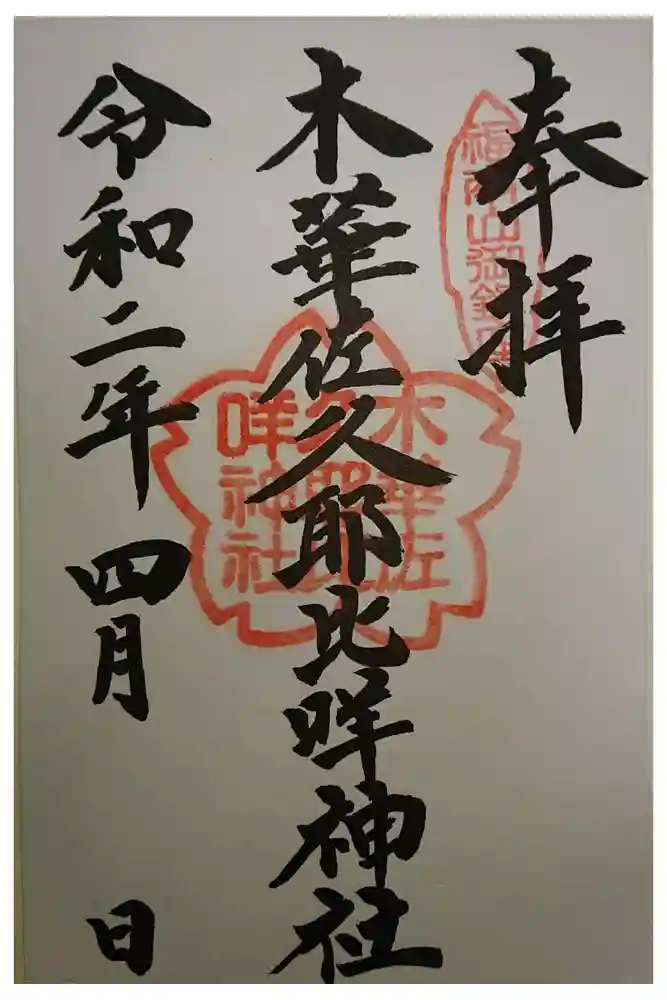 奉拝
福岡山御鎮座
木華佐久耶比咩神社
木華佐
久耶比
咩神社
令和二年四月 日